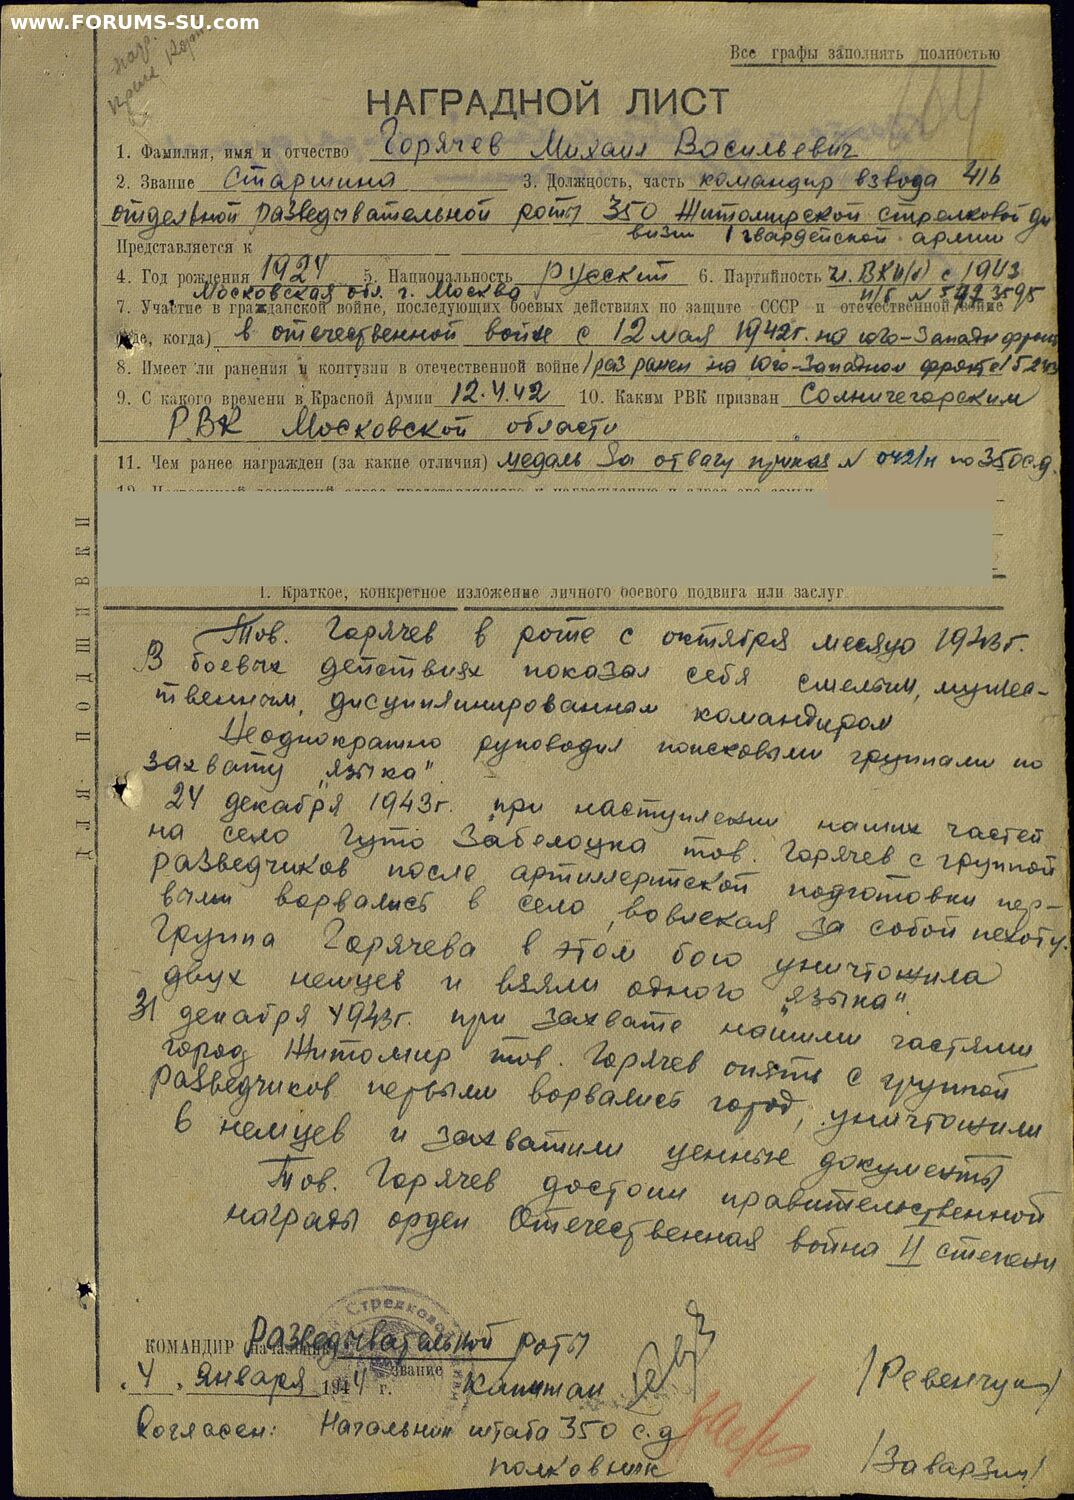 www.FORUMS-SU.com
Все графы заполнять полностью
НАГРАДНОЙ ЛИСТ
1. Фамилия, имя и отчество Горячев Михаил Васильевич
2. Звание Старшина 3. Должность, часть командир взвода 416
отдельной разведывательной роты 350 Житомирской стрелковой ди
визии 1 гвардейской армии
Представляется к
4. Год рождения 1924 5. Национальность русский 6. Партийность чл. ВКП(б) с 1943
Московская обл. г. Москва п/б №
7. Участие в гражданской войне, последующих боевых действиях по защите СССР и отечественной войне
(где, когда) в отечественной войне с 12 мая 1942г. на юго-западн фронте
8. Имеет ли ранения и контузии в отечественной войне 1 раз ранен на Юго-Западном фронте
9. С какого времени в Красной Армии 12.4.42 10. Каким РВК призван Солнечегорским
РВК Московской области
11. Чем ранее награжден (за какие отличия) медаль За отвагу приказ № 042/н по 350 с.д.
12. Постоянный домашний адрес представляемого к награждению и адрес его семьи
1. Краткое, конкретное изложение личного боевого подвига или заслуг
ДЛЯ ПОДШИВКИ
Тов. Горячев в роте с октября месяца 1943г.
В боевых действиях показал себя смелым, мужес-
твенным, дисциплинированным командиром
Неоднократно руководил поисковыми группами по
захвату "языка"
24 декабря 1943г. при наступлении наших частей
на село Гуто Забелоцка тов. Горячев с группой
разведчиков после артиллерийской подготовки пер-
выми ворвались в село, вовлекая за собой пехоту.
Группа Горячева в этом бою уничтожила
двух немцев и взяли одного "языка"
31 декабря 1943г. при захвате нашими частями
город Житомир тов. Горячев опять с группой
разведчиков первыми ворвались город, уничтожили
6 немцев и захватили ценные документы
Тов. Горячев достоин правительственной
награды орден Отечественная война II степени
Стрелковая
КОМАНДИР начальник Разведывательной роты
звание
"4" января 1944 г. Капитан /Ревенчук/
Согласен: Начальник штаба 350 с.д
полковник /Заварзин/